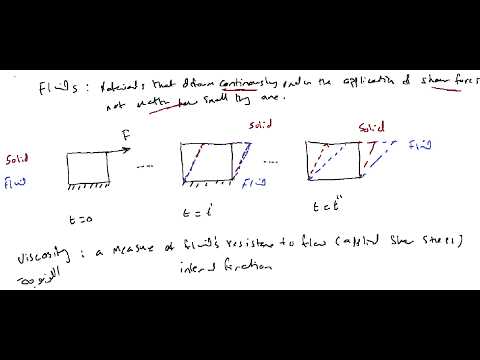 Fluids : Materials that deform continuously under the application of shear forces
not matter how small they are.
F
Solid
Solid
Solid
Fluid
Fluid
Fluid
t=0
t=t'
t=t"
Viscosity : a measure of fluid's resistance to flow (applied shear stress)
internal friction